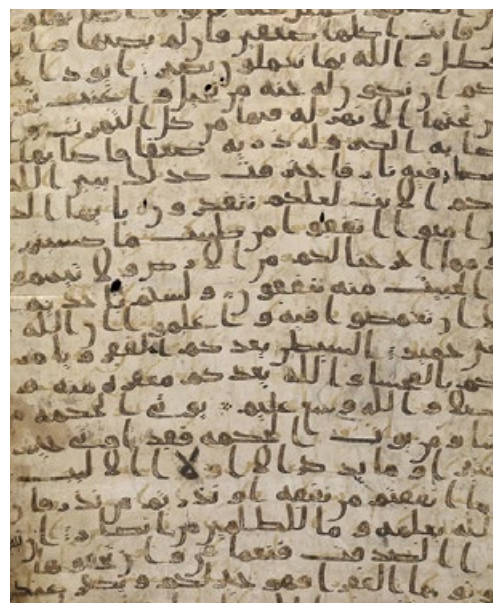 فاتت اكلها ضعفين فان لم يصبها وا
فطل و الله بما تعملون بصير ايود ا
حدكم ان تكون له جنة من نخيل و اعنب تجر
من تحتها الانهر له فيها من كل الثمرت و ا
صابه الكبر وله ذرية ضعفا فاصابها
اعصار فيه نار فاحترقت كذلك يبين الله
لكم الايت لعلكم تتفكرون يايها الذ
ين امنوا انفقوا من طيبت ما كسبتم
و مما اخرجنا لكم من الارض و لا تيمموا
الخبيث منه تنفقون و لستم باخذيه
الا ان تغمضوا فيه و اعلموا ان الله
غني حميد الشيطن يعدكم الفقر و يامر
كم بالفحشا و الله يعدكم مغفرة منه و
فضلا و الله وسع عليم يوتي الحكمة
من يشا و من يوت الحكمة فقد اوتي خير
كثيرا و ما يذكر الا اولوا الالبب
و ما انفقتم من نفقة او نذرتم من نذر فا
ن الله يعلمه و ما للظلمين من انصار
ان تبدوا الصدقت فنعما هي و ان تخفوها
و توتوها الفقرا فهو خير لكم و يكفر عنكم